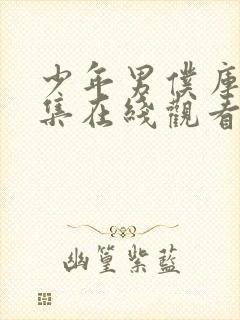 少年男僕庫
集在綫觀看
幽篁紫藍